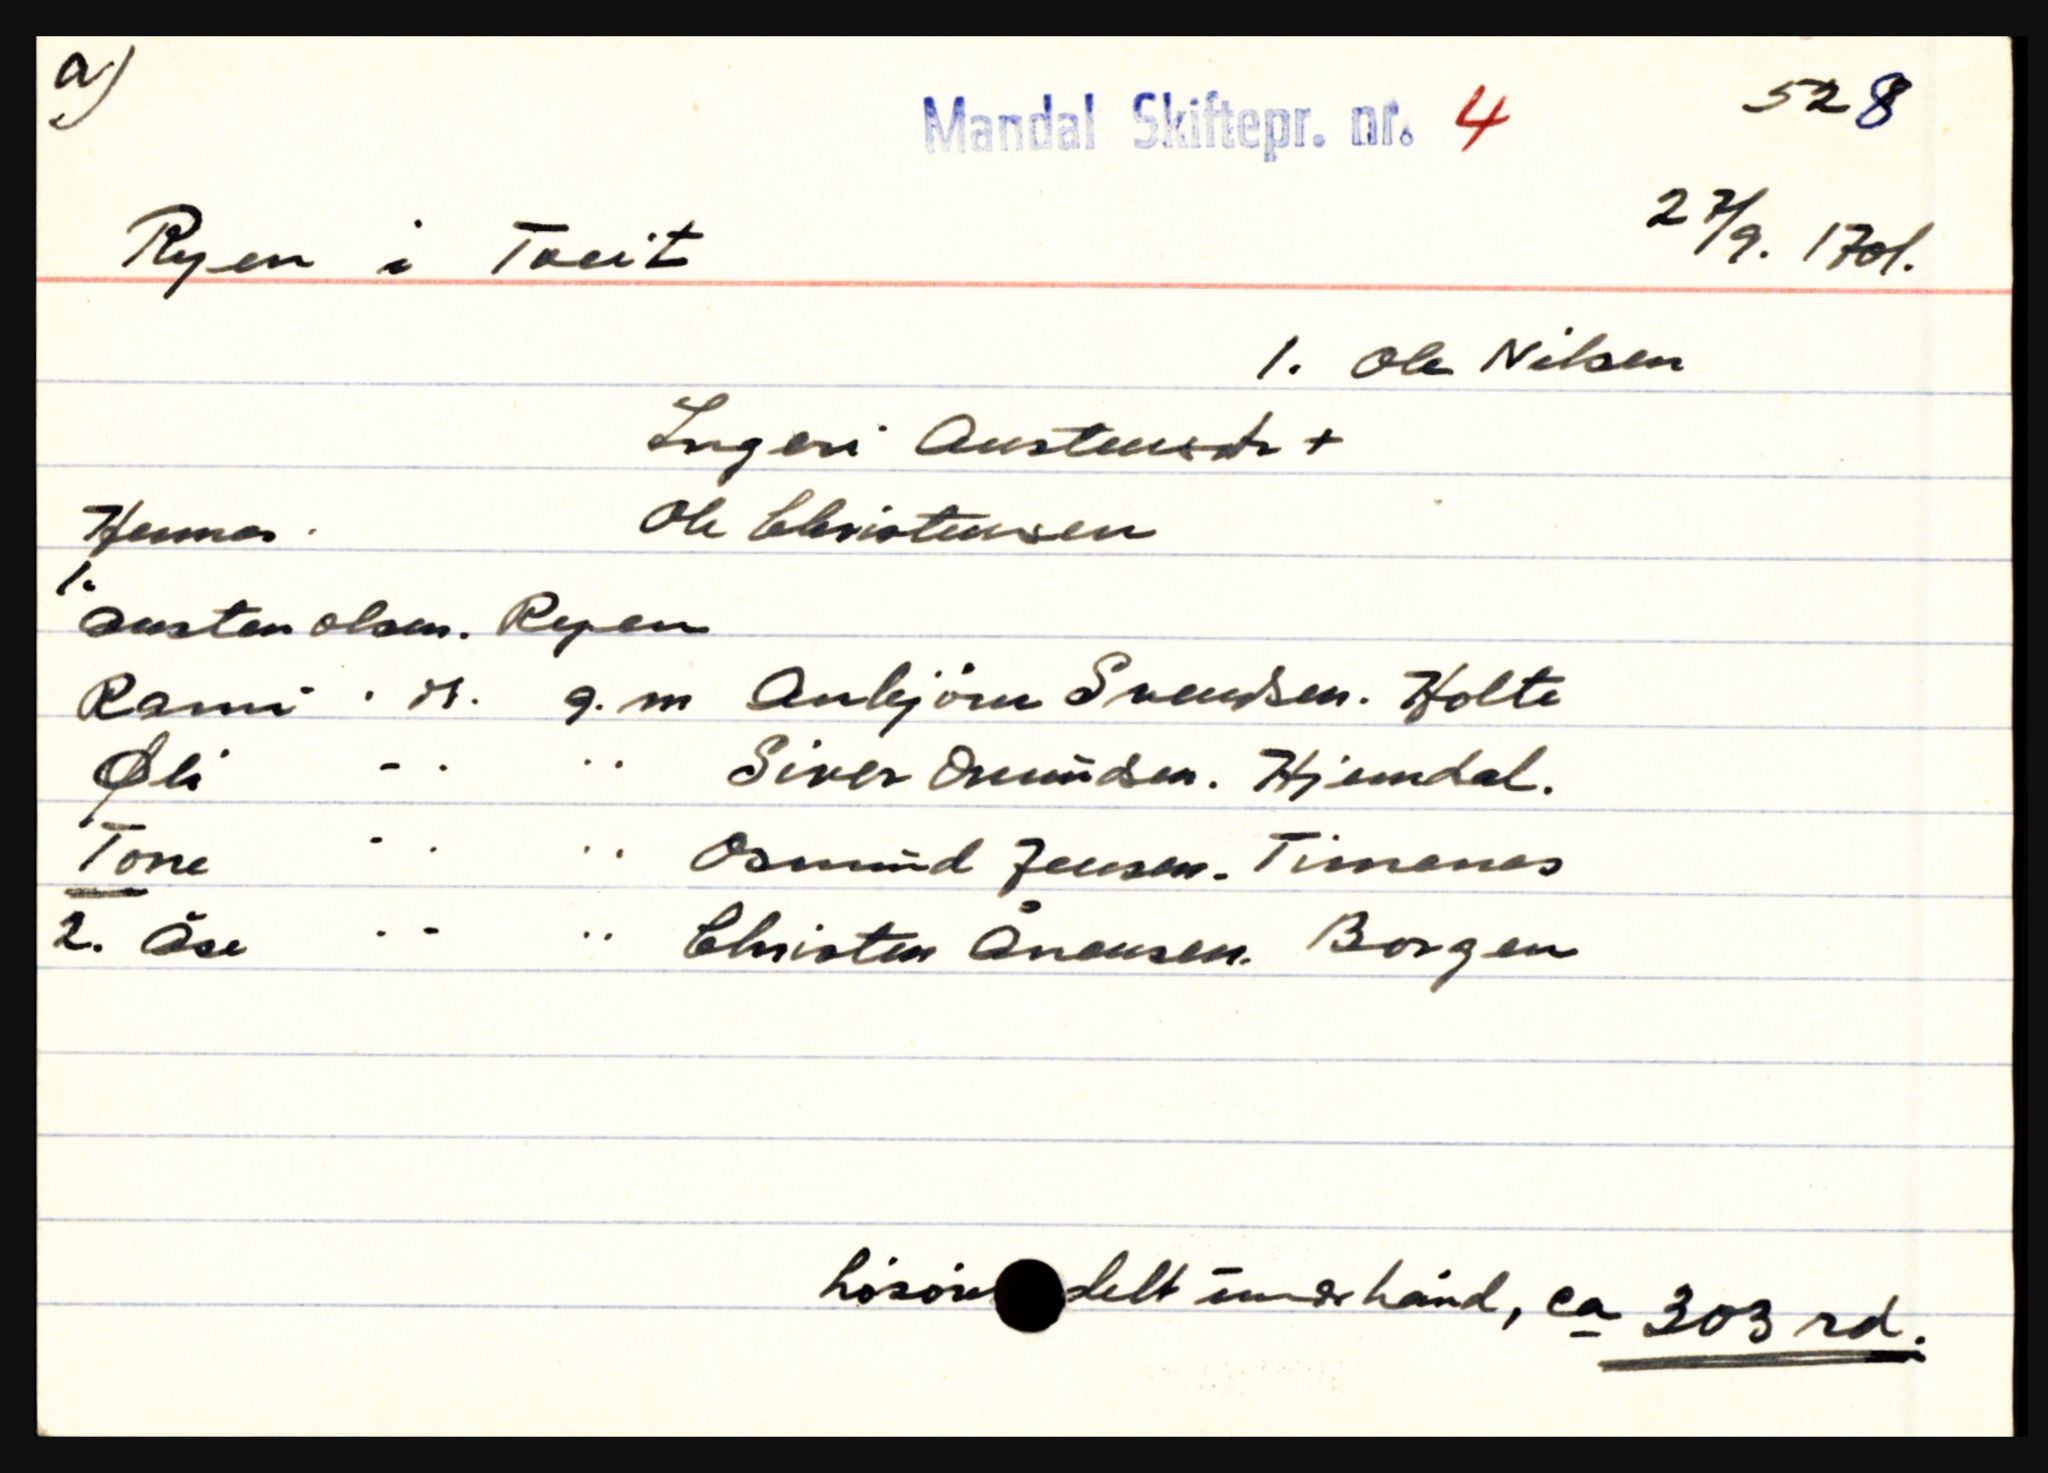 a)
Mandal Skiftepr. nr. 4
528
Ryen i Tveit
27/9. 1701.
1. Ole Nilsen
Ingeri Austensdr +
Hennes. Ole Christensen
1.
Austen Olsen. Ryen
Ranni . d. g. m Anbjörn Svendsen. Holte
Øli - . .. Siver Omŭndsen. Hjemdal.
Tone - . .. Osmŭnd Jensen. Timenes
2. Åse . - .. Christen Ånensen. Borgen
delt ŭnder hånd, ca 303 rd.